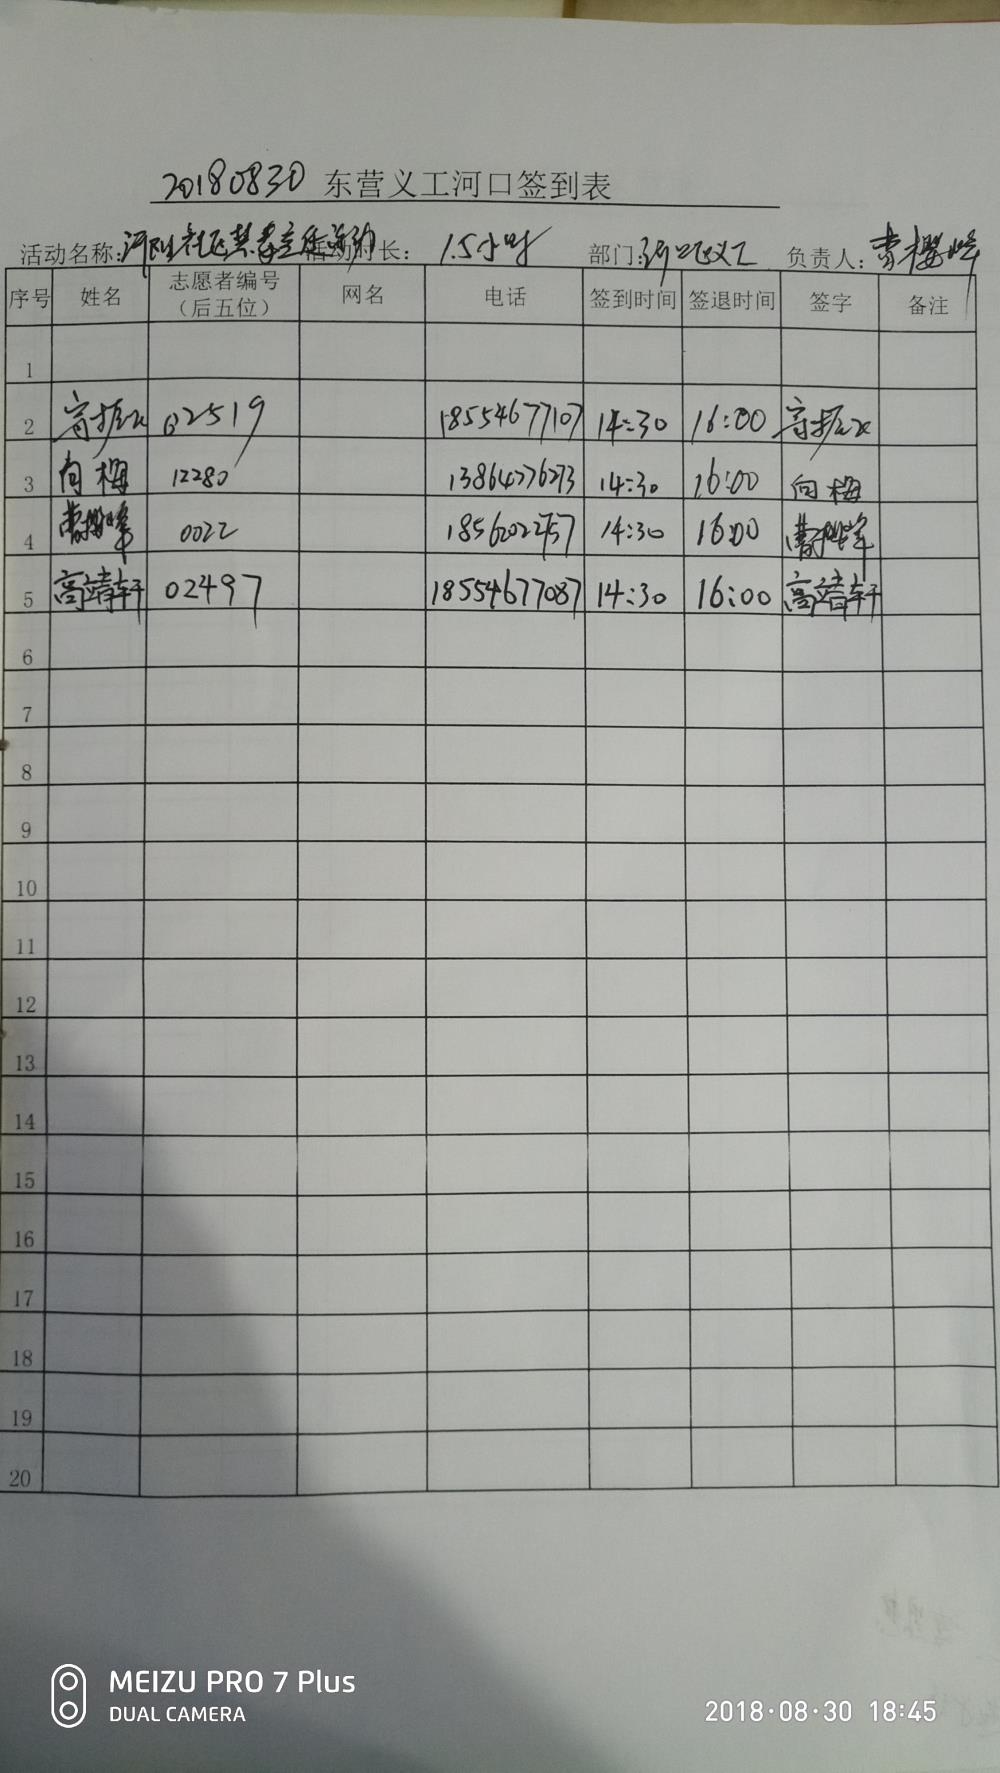 20180830 东营义工河口签到表
活动名称: 活动时长: 1.5小时 部门:河口义工 负责人:曹樱峰
序号 姓名 志愿者编号（后五位） 网名 电话 签到时间 签退时间 签字 备注
1
2 02519 18554677107 14:30 16:00
3 向梅 12280 13864776273 14:30 16:00 向梅
4 0022 14:30 16:00
5 高靖轩 02497 18554677087 14:30 16:00 高靖轩
6
7
8
9
10
11
12
13
14
15
16
17
18
19
20
MEIZU PRO 7 Plus
DUAL CAMERA
2018·08·30 18:45